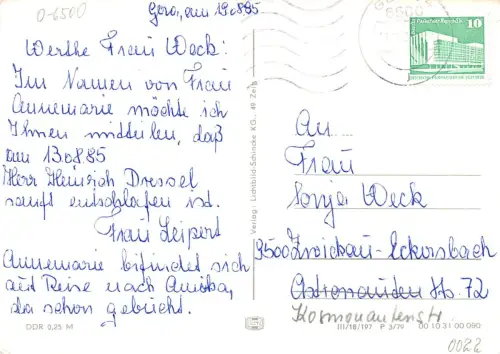 0-6500
Gera, am 19.8.85
Werthe Frau Weck:
Im Namen von Frau
Annemarie möchte ich
Ihnen mitteilen, daß
am 13.8.85
Herr Heinrich Dressel
sanft entschlafen ist.
Frau Leipert
Annemarie befindet sich
auf Reise nach
da schon gebucht.
DDR 0,25 M
Verlag: Lichtbild-Schincke KG., 49 Zeitz
10
An...
Frau
Sonja Weck
9500 Zwickau-Eckersbach
Astronauten Hs. 72
Kosmonautenstr.
III/18/197 P 3/79 00 10 31 00 050
0022